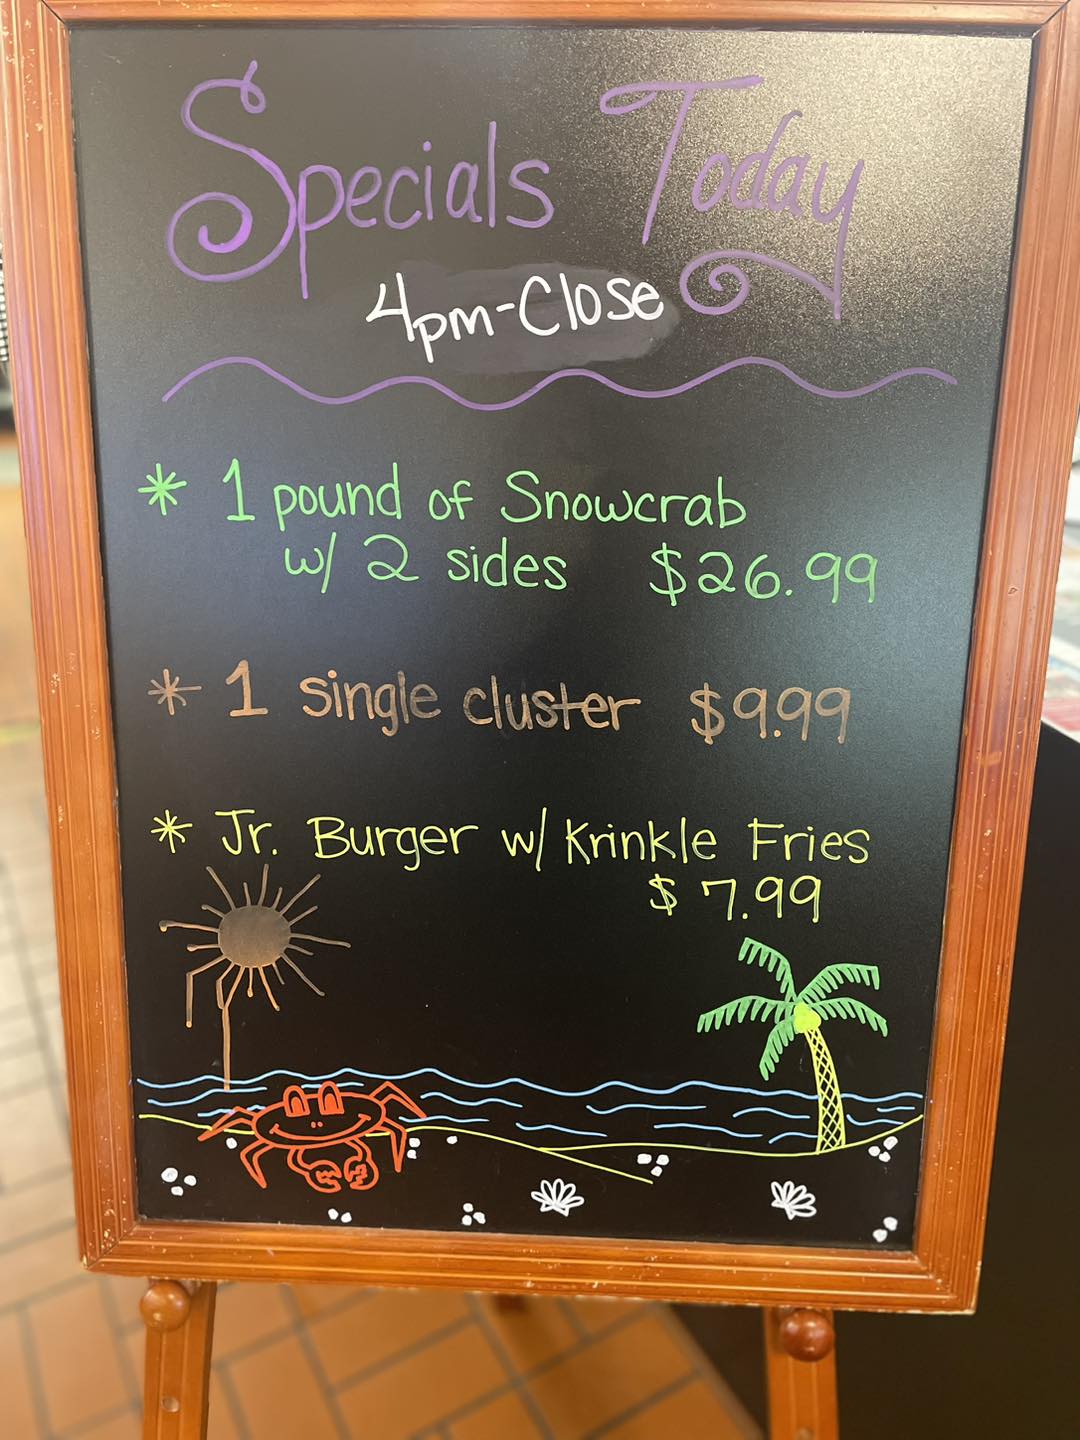 Specials Today
4pm-Close
* 1 pound of Snowcrab
w/ 2 sides $26.99
* 1 single cluster $9.99
* Jr. Burger w/ Krinkle Fries
$7.99